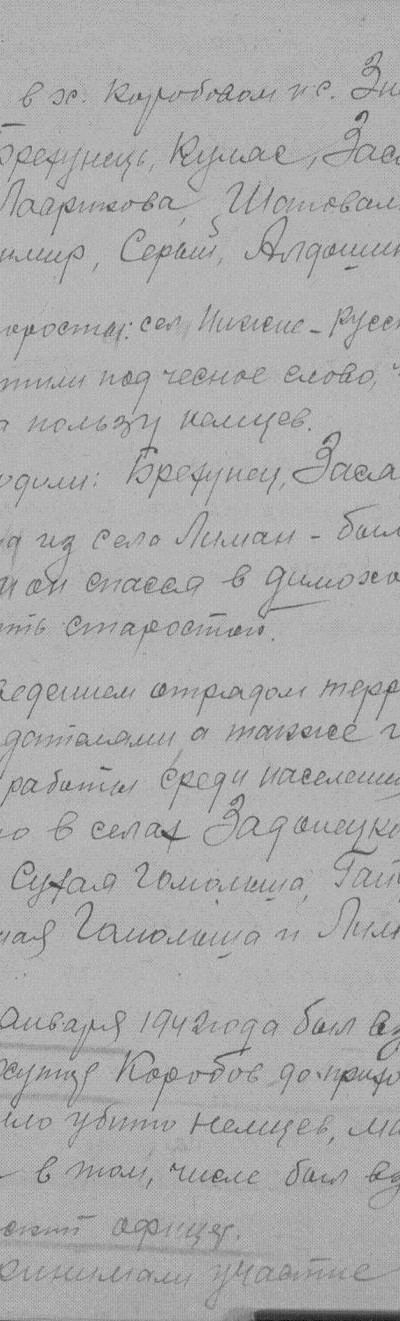 в х. Коробовом п с. Зи
Брехунец, Кулас, Засл
Лаартова, Шаповал
имир, Серый, Алдошин
старосты: сел Нижне-Русск
тили под честное слово, ч
а пользу немцев.
одили: Брехунец, Засла
да из села Лиман - был
и он спасся в дымохо
ть старостой.
ведением отрядом терр
дателями, а также г
работы среди населени
о в селах Задонецко
Сухая Гомольша, Гай
ная Гомольша и Лим
января 1942 года был вз
хутор Коробов до прихо
ло убито немцев, ма
в том, числе был вз
ский офицер.
ринимали участие